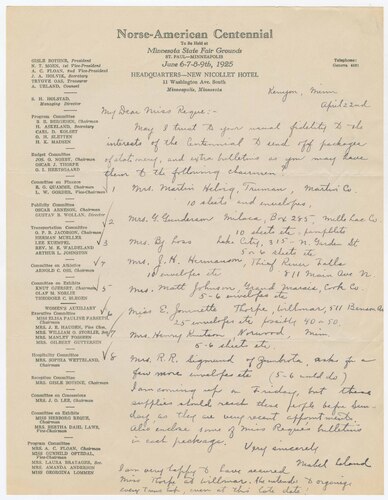 Norse-American Centennial
To Be Held at
Minnesota State Fair Grounds
ST. PAUL—MINNEAPOLIS
June 6-7-8-9th, 1925
HEADQUARTERS—NEW NICOLLET HOTEL
11 Washington Ave. South
Minneapolis, Minnesota
Telephone:
GISLE BOTHNE, President
N. T. MOEN, 1st Vice-President
A. C. FLOAN, 2nd Vice-President
J. A. HOLVIK, Secretary
TRYGVE OAS, Treasurer
A. UELAND, Counsel
S. H. HOLSTAD,
Managing Director
Program Committee
H. ASKELAND, Secretary
CARL D. KOLSET
O. H. SLETTEN
H. K. MADSEN
Budget Committee
JOS. G. NORBY, Chairman
OSCAR J. THORPE
Committee on Finance
R. G. QUAMME, Chairman
Publicity Committee
OSCAR ARNESON, Chairman
GUSTAV B. WOLLAN, Director
Transportation Committee
O. P. B. JACOBSON, Chairman
HERMAN MUELLER
LEE KUEMPEL
ARTHUR L. JOHNSTON
Committee on Athletics
ARNOLD C. OSS, Chairman
Committee on Exhibits
KNUT GJERSET, Chairman
OLAF M. NORLIE
THEODORE C. BLEGEN
WOMEN'S AUXILIARY
Executive Committee
MISS ELISA PAULINE FARSETH,
Chairman
MRS. WILLIAM O. STORLIE, Sec.
MRS. MANLEY FOSSEEN
MRS. GILBERT GUTTERSEN
Hospitality Committee
Chairman
Reception Committee
MRS. GISLE BOTHNE, Chairman
Committee on Concessions
MRS. J. O. LEE, Chairman
Committee on Exhibits
MISS HERBORG REQUE,
Chairman
MRS. BERTHA DAHL LAWS,
Vice-Chairman
Program Committee
MRS. A. C. FLOAN, Chairman
MISS GUNHILD OFTEDAL,
Vice-Chairman
MRS. LAURA BRATAGER, Sec.
MRS. AMANDA ANDERSON
MISS GEORGINA LOMMEN
Kenyon, Minn
April 22nd
My Dear Miss Reque:-
May I trust to your usual fidelity to the
interests of the Centennial to send off packages
of stationery, and extra bulletins as you may have
them to the following chairmen:
1 Mrs. Martin Helvig, Truman, Martin Co.
10 sheets and envelopes,
2 Mrs. G. Gunderson Milaca, Box 285, Mille Lac Co
10 sheets etc. pamphlets
3 Mrs. By Loss Lake City, 315- N. Garden St
5 or 6 sheets etc
4 Mrs. J. H. Hermanson, Thief River Falls
10 envelopes etc 811 Main Ave N
5 Mrs. Matt Johnson, Grand Marais, Cook Co.
5-6 envelopes etc
6 Miss E. Jeannette Thorpe, Willmar, 511 Benson
25 envelopes etc possibly 40 or 50
7 Mrs. Henry Knutson Norwood, Minn.
5-6 sheets etc.
8 Mrs. R. R. Sigmond of Zumbrota, asks for a
few more envelopes etc (5-6 would do)
I am coming up Friday, but these
supplies should reach these people before Sun-
day as they are very recent appointments.
Also enclose some of Miss Reque's bulletins
in each package.
Very sincerely,
I am very happy to have secured
Miss Thorpe at Willmar. She intends to organize
every town up, even at this late date.